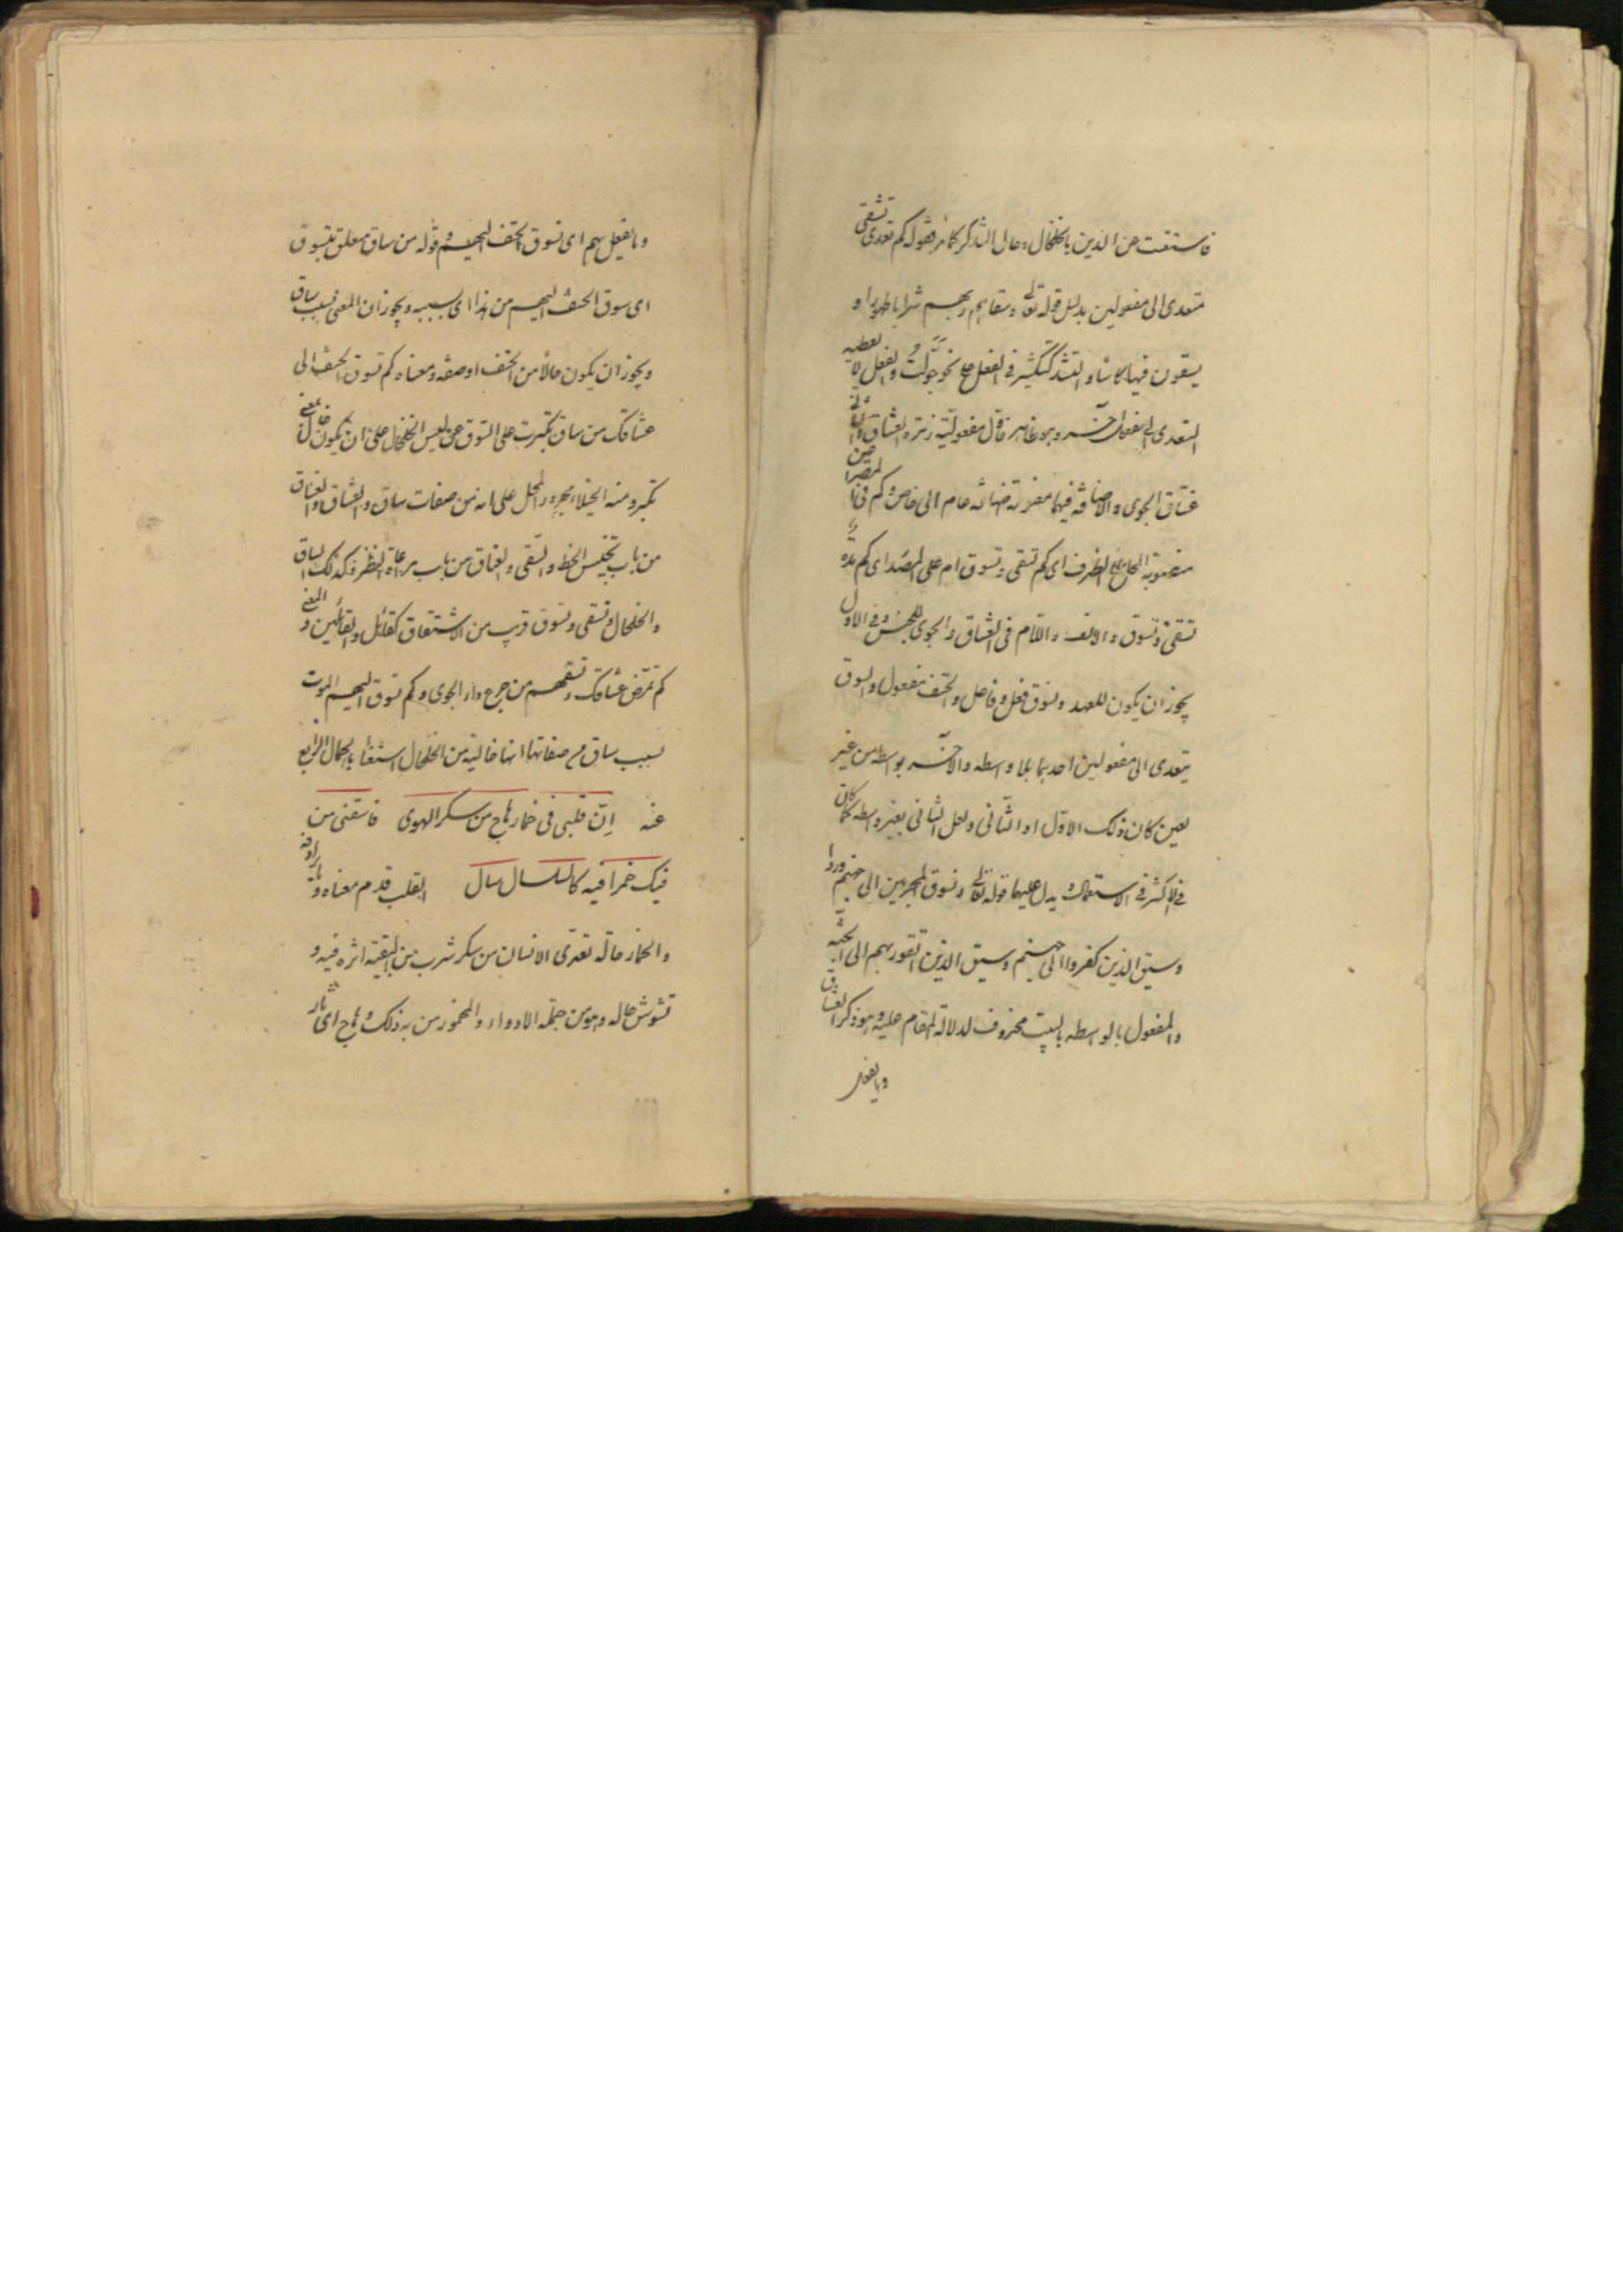 فاستغنت عن الدين بالخلخال وحال التذكر كما مر فقوله كم تعدى تسقى
متعدى الى مفعولين بدليل قوله تعالى وسقاهم ربهم شرابا طهورا و
يسقون فيها كاسا والتشديد للتكثير فى الفعل نحو جولت والفعل لا يعطيه
التعدى الى مفعول آخر وهو ظاهر فاول مفعوليه زمره العشاق والثانى
غساق الجوى والاضافة فيهما معنوية اضافة عام الى خاص وكم فى المصراعين
منصوبة المحل على الظرف اى كم تسقى وتسوق ام على المصدر اى كم مرة
تسقى وتسوق والالف واللام فى العشاق والجوى للجنس وفى الاول
يجوز ان يكون للعهد وتسوق فعل وفاعل والحتف مفعول والسوق
يتعدى الى مفعولين احدهما بلا واسطه والآخر بواسطه من غير
تعين كان ذلك الاول او الثانى ولعل الثانى بغير واسطه كما كان
فى الاكثر فى الاستعمال يدل عليها قوله تعالى ونسوق المجرمين الى جهنم وردا
وسيق الذين كفروا الى جهنم وسيق الذين اتقوا ربهم الى الجنة
والمفعول بالواسطه بالبيت محذوف لدلالة المقام عليه وهو ذكر العشاق
وما يفعل
وما يفعل بهم اى تسوق الحتف اليهم وقوله من ساق معلق بتسوق
اى سوق الحتف اليهم من هذا اى بسببه ويجوز ان المعنى بسبب ساق
ويجوز ان يكون حالا من الحتف او صفه ومعناه كم تسوق الحتف الى
عشاقك من ساق تكبرت على السوق عن لبس الخلخال على ان يكون خال بمعنى
تكبر ومنه الخيلاء مجرور المحل على انه من صفات ساق والعشاق والغساق
من باب تجنيس الخط والسقى والغساق من باب مراعاة النظير وكذلك الساق
والخلخال وتسقى وتسوق قريب من الاشتقاق كقائل والقائلين والمعنى
كم تمرض عشاقك وتسقهم من جرع داء الجوى وكم تسوق اليهم الموت
بسبب ساق من صفاتها انها خالية من الخلخال استغناء بالجمال الرابع
عنه ان قلبى فى خمار هاج من سكر الهوى فاسقنى من
فيك خمرا فيه كالسلسال سال القلب قدم معناه وما يرادفه
والخمار حالة تعترى الانسان من سكر شرب من بقية اثره فيه و
تشوش حاله وهو من جملة الادواء والمخمور من به ذلك وهاج اى ثار